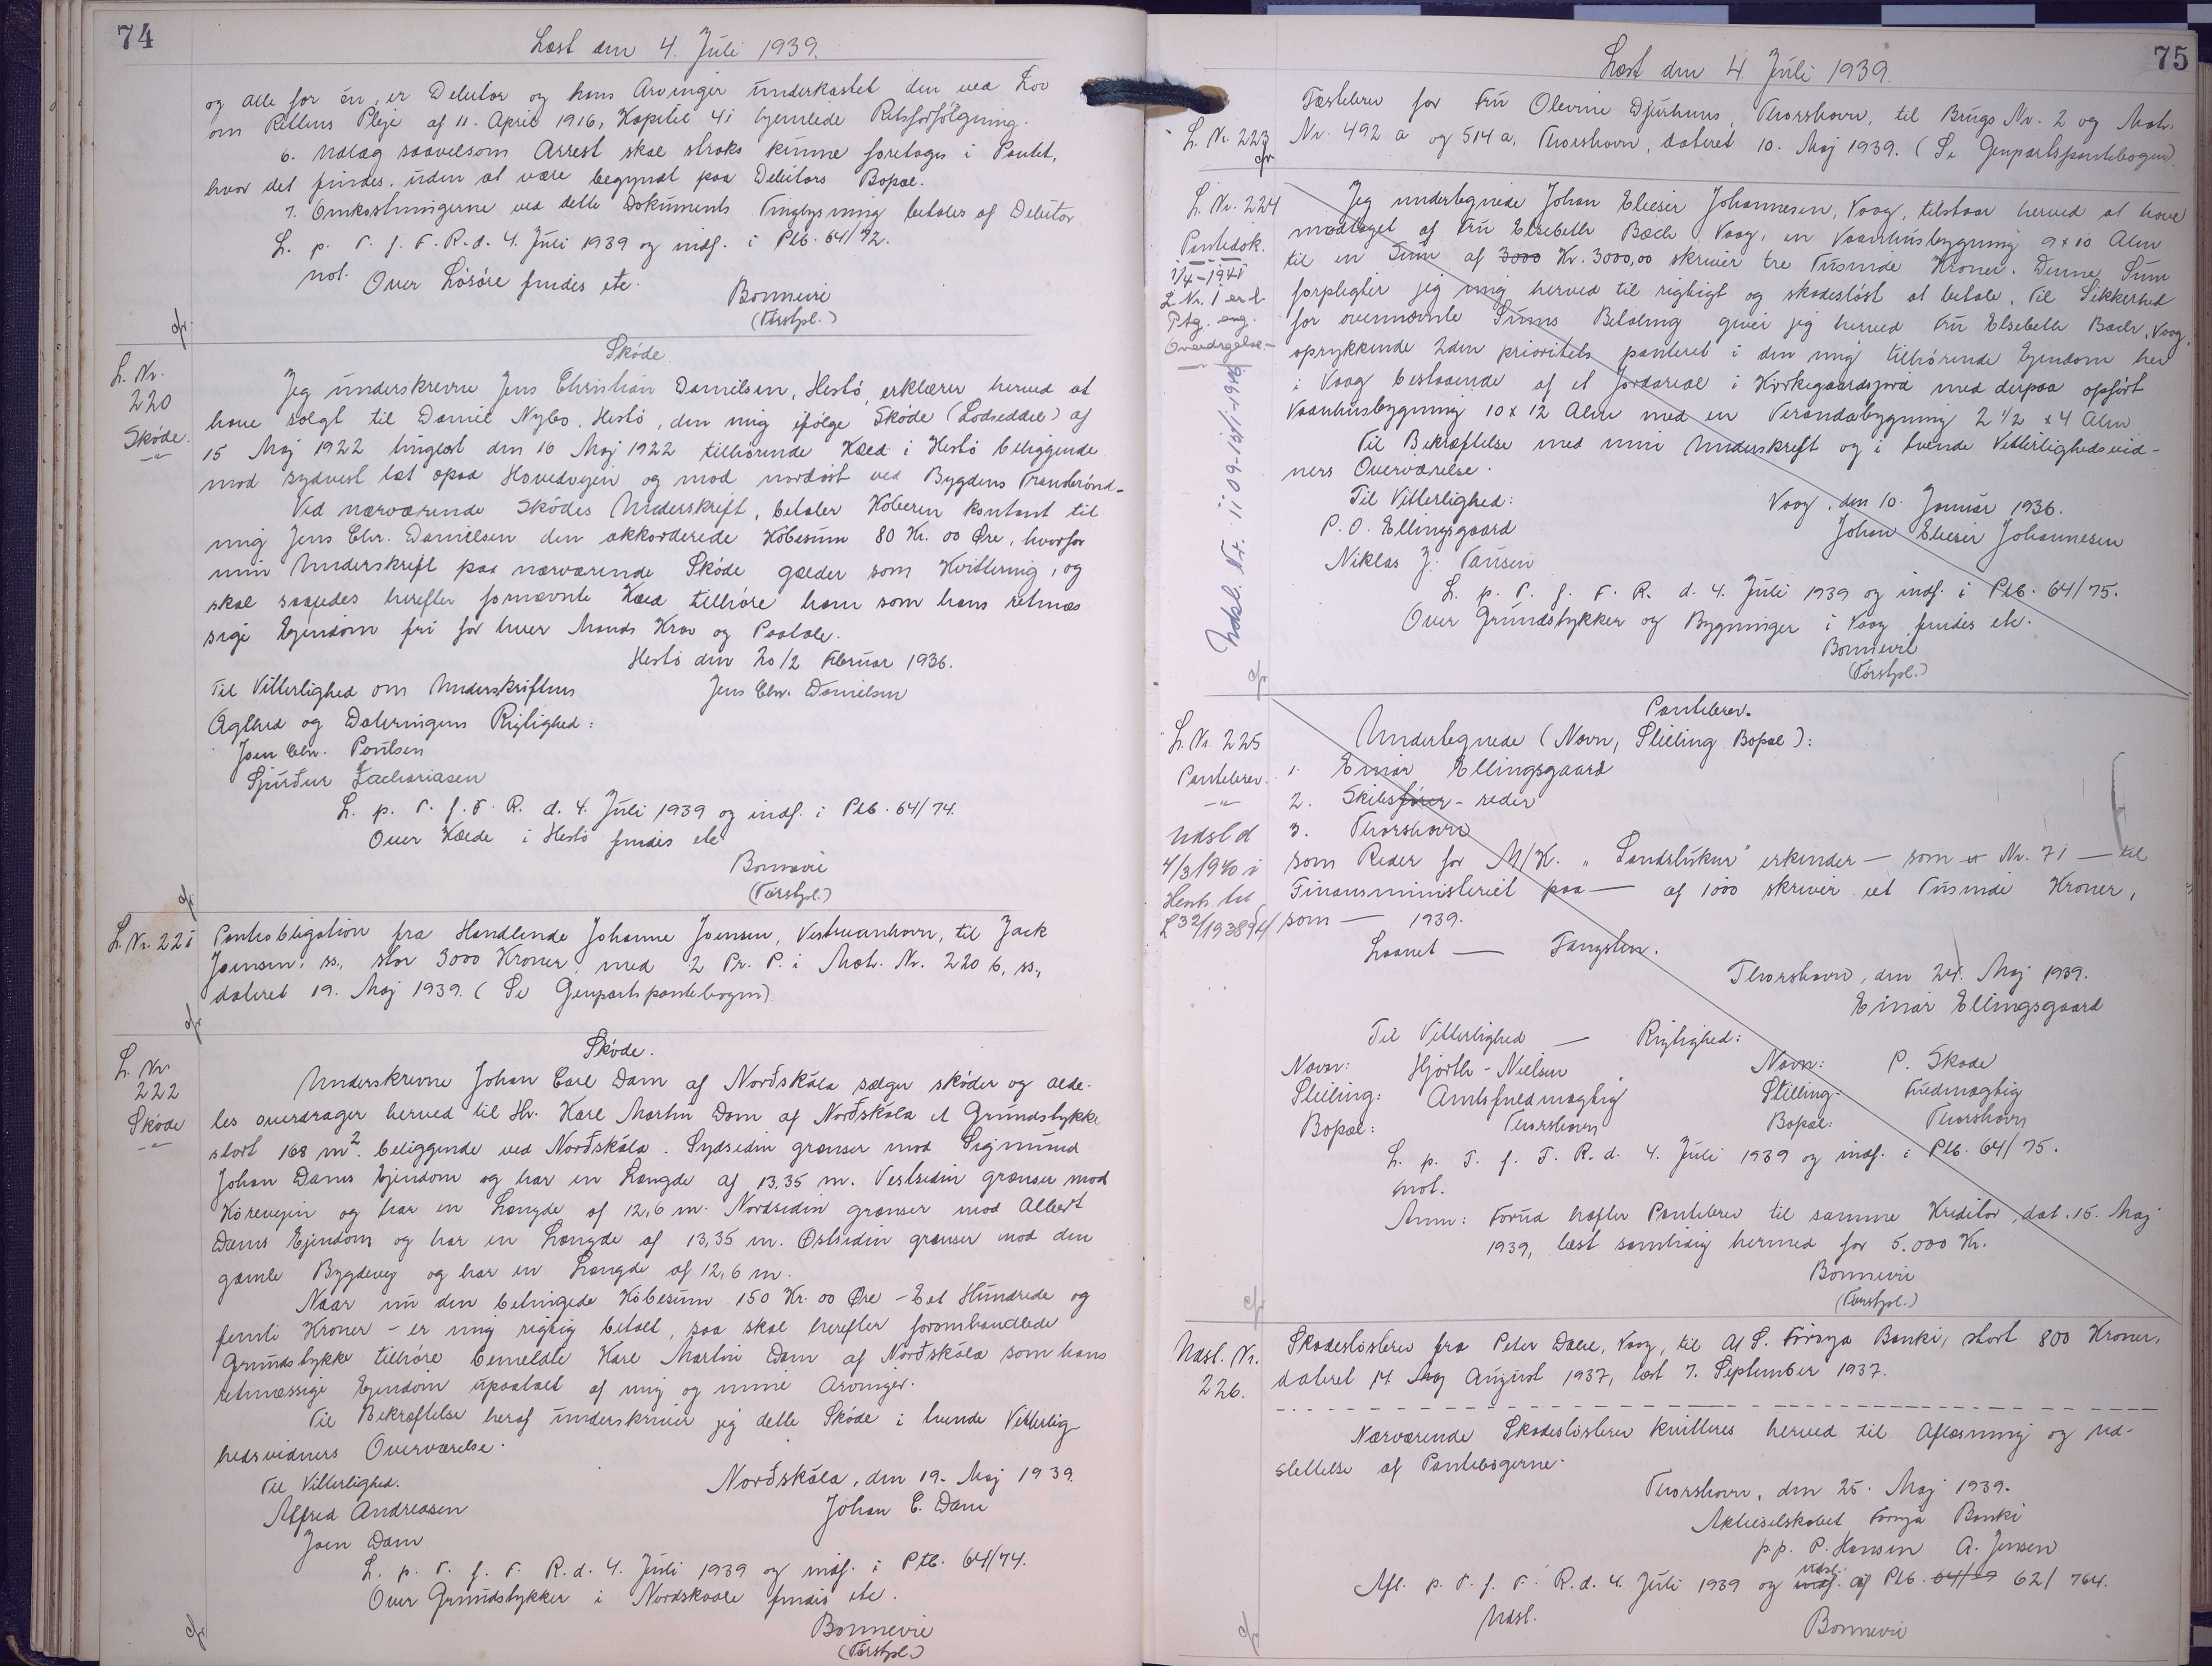 74
Læst den 4. Juli 1939.
og alle for én, er Debitor og hans Arvinger underkastet den ved Lov
om Rettens Pleje af 11. April 1916, Kapitel 41 hjemlede Retsforfölgning.
6. Udlæg saavelsom Arrest skal straks kunne foretages i Pantet,
hvor det findes, uden at være begyndt paa Debitors Bopæl.
7. Omkostningerne ved dette Dokuments Tinglysning betales af Debitor.
L. p. T. f. F. R. d. 4. Juli 1939 og indf. i Ptb. 64/72.
not. Over Lösöre findes etc.
Bonnevie
(Förstpl.)
L. Nr.
220
Sköde
Sköde.
Jeg underskrevne Jens Christian Danielsen, Hestö, erklærer herved at
have solgt til Daniel Nybo, Hestö, den mig ifölge Sköde (Lodseddel) af
15 Maj 1922 tinglæst den 16 Maj 1922 tilhörende Kæld i Hestö beliggende
mod sydvest tæt opaa Hovedvejen og mod nordöst ved Bygdens
Ved nærværende Sködes Underskrift, betaler Köberen kontant til
mig Jens Chr. Danielsen den akkorderede Köbesum 80 Kr. 00 Øre, hvorfor
min Underskrift paa nærværende Sköde gælder som Kvittering, og
skal saaledes herefter fornævnte Kæld tilhöre ham som hans retmæs
sige Ejendom fri for hver Mands Krav og Paatale.
Hestö den 20/2 Februar 1936.
Til Vitterlighed om Underskriftens
Jens Chr. Danielsen
Ægthed og Dateringens Rigtighed:
Joen Chr. Poulsen
Sjúrður Zachariasen
L. p. T. f. F. R. d. 4. Juli 1939 og indf. i Ptb. 64/74.
Over Kælde i Hestö findes etc
Bonnevie
(Förstpl.)
L. Nr. 221
Pantobligation fra Handlende Johanne Joensen, Vestmanhavn, til Jack
Joensen, ss., stor 3000 Kroner, med 2 Pr. P. i Matr. Nr. 220 b, ss.,
dateret 19. Maj 1939. (Se Genpartspantebogen)
L. Nr
222
Sköde
Sköde.
Underskrevne Johan Carl Dam af Norðskála sælger sköder og alde-
les overdrager herved til Hr. Karl Martin Dam af Norðskála et Grundstykke
stort 168 m². beliggende ved Norðskála. Sydsiden grænser mod Sigmund
Johan Dams Ejendom og har en Længde af 13,35 m. Vestsiden grænser mod
Körevejen og har en Længde af 12,6 m. Nordsiden grænser mod Albert
Dams Ejendom og har en Længde af 13,35 m. Østsiden grænser mod den
gamle Bygdevej og har en Længde af 12,6 m.
Naar nu den betingede Köbesum 150 Kr. 00 Øre - Eet Hundrede og
femti Kroner - er mig rigtig betalt, saa skal herefter foromhandlede
Grundstykke tilhöre bemeldte Karl Martin Dam af Norðskála som hans
retmæssige Ejendom upaatalt af mig og mine Arvinger.
Til Bekræftelse heraf underskriver jeg dette Sköde i tvende Vitterlig
hedsvidners Overværelse.
Til Vitterlighed.
Norðskála, den 19. Maj 1939.
Alfred Andreasen
Johan C. Dam
Joen Dam
L. p. T. f. F. R. d. 4. Juli 1939 og indf. i Ptb. 64/74.
Over Grundstykker i Nordskaale findes etc.
Bonnevie
(Förstpl.)
75
Læst den 4. Juli 1939.
L. Nr. 223
Fæstebrev for Fru Olevine Djurhuus, Thorshavn, til Brugs Nr. 2 og Matr.
Nr. 492 a og 514 a, Thorshavn, dateret 10. Maj 1939. (Se Genpartspantebogen)
L. Nr. 224
Pantedok.
1/4-1941
L. Nr. 1 erl
Ptg. ang.
Overdragelse.
Udsl. Nr. 1109
Jeg undertegnede Johan Elieser Johannesen, Vaag, tilstaar herved at have
modtaget af Fru Elsebeth Bæch, Vaag, en Vaanhusbygning 9 x 10 Alen
til en Sum af 3000 Kr. 3000,00 skriver tre Tusinde Kroner. Denne Sum
forpligter jeg mig herved til rigtigt og skadeslöst at betale. Til Sikkerhed
for ovennævnte Sums Betaling giver jeg herved Fru Elsebeth Bæch, Vaag,
oprykkende 2den prioritets panteret i den mig tilhörende Ejendom her
i Vaag bestaaende af et Jordareal i Kirkegaardsjord med derpaa opfört
Vaanhusbygning 10 x 12 Alen med en Verandabygning 2 1/2 x 4 Alen
Til Bekræftelse med min Underskrift og i tvende Vitterlighedsvid-
ners Overværelse.
Til Vitterlighed:
Vaag, den 10. Januar 1936.
P. O. Ellingsgaard
Johan Elieser Johannesen
Niklas J. Tausen
L. p. T. f. F. R. d. 4. Juli 1939 og indf. i Ptb. 64/75.
Over Grundstykker og Bygninger i Vaag findes etc.
Bonnevie
(Förstpl.)
L. Nr. 225
Pantebrev.
Udsl d
4/3 1940 i
Henh. til
Pantebrev.
Undertegnede (Navn, Stilling Bopæl):
1. Einar Ellingsgaard
2. Skibsfører - reder
3. Thorshavn
som Reder for M/K. "Sandstukur" erkender — som et Nr. 71 — til
Finansministeriet paa — af 1000 skriver eet Tusinde Kroner,
som — 1939.
Laanet — Fangsten.
Thorshavn, den 24. Maj 1939.
Einar Ellingsgaard
Til Vitterlighed — Rigtighed:
Navn: Hjorth-Nielsen Navn: P. Skade
Stilling: Amtsfuldmægtig Stilling: Fuldmægtig
Bopæl: Thorshavn Bopæl: Thorshavn
L. p. T. f. F. R. d. 4. Juli 1939 og indf. i Ptb. 64/75.
not.
Anm: Forud hæfter Pantebrev til samme Kreditor, dat. 15. Maj
1939, læst samtidig hermed for 5.000 Kr.
Bonnevie
(Förstpl.)
Udsl. Nr.
226.
Skadeslösbrev fra Peter Dahl, Vaag, til A/S. Föroya Banki, stort 800 Kroner,
dateret 14 Maj August 1937, læst 7. September 1937.
Nærværende Skadeslösbrev kvitteres herved til Aflæsning og Ud-
slettelse af Pantebögerne.
Thorshavn, den 25. Maj 1939.
Aktieselskabet Föroya Banki
p.p. P. Hansen A. Jensen
Afl. p. T. f. F. R. d. 4. Juli 1939 og indf. udsl. af Ptb. 62/764.
Udsl.
Bonnevie